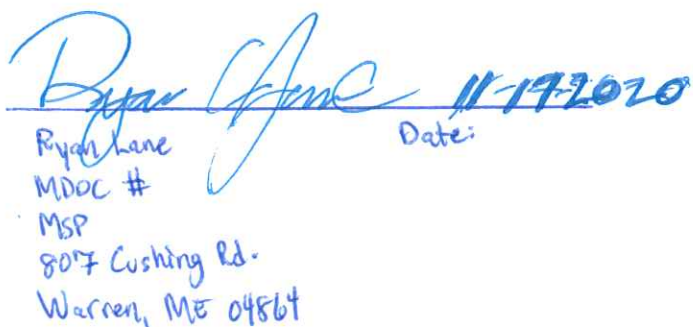 Ryan Lane 11-19-2020
Ryan Lane Date:
MDOC #
MSP
807 Cushing Rd.
Warren, ME 04864